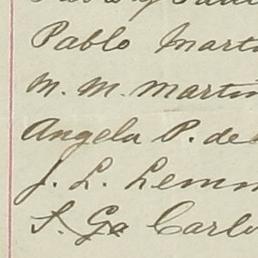 Pablo Marti
M. M. Martin
Angela P. de
J. L. Lemm
S. Ga Carlo